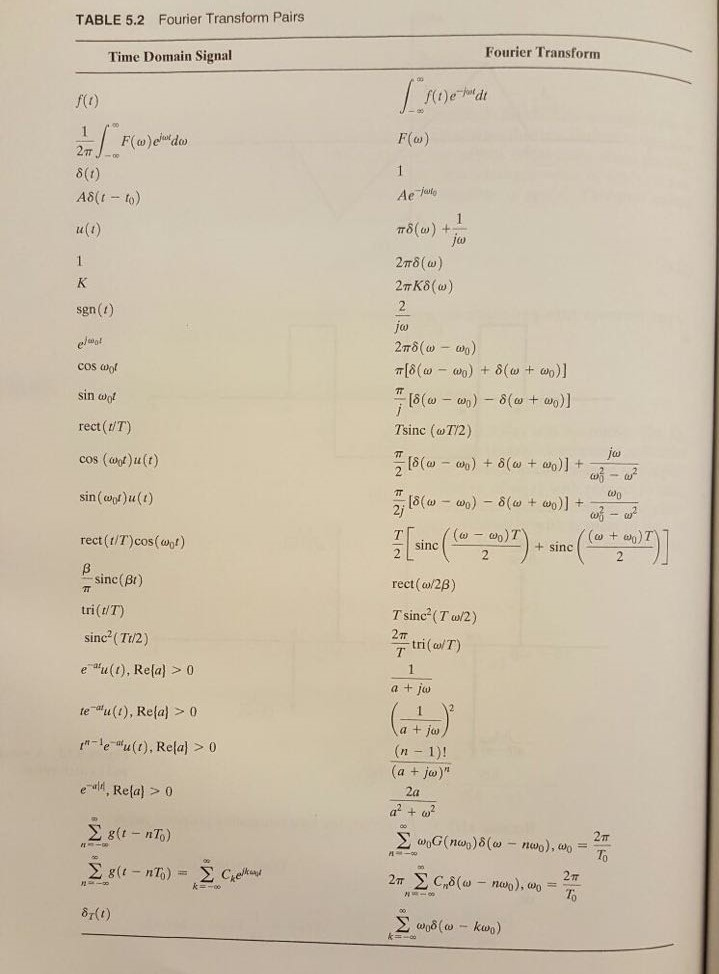 TABLE 5.2 Fourier Transform Pairs
Time Domain Signal Fourier Transform
f(t) ∫_{-∞}^{∞} f(t)e^{-jωt}dt
\frac{1}{2π} ∫_{-∞}^{∞} F(ω)e^{jωt}dω F(ω)
δ(t) 1
Aδ(t − t₀) Ae^{-jωt₀}
u(t) πδ(ω) + \frac{1}{jω}
1 2πδ(ω)
K 2πKδ(ω)
sgn(t) \frac{2}{jω}
e^{jω₀t} 2πδ(ω − ω₀)
cos ω₀t π[δ(ω − ω₀) + δ(ω + ω₀)]
sin ω₀t \frac{π}{j}[δ(ω − ω₀) − δ(ω + ω₀)]
rect(t/T) Tsinc (ωT/2)
cos (ω₀t)u(t) \frac{π}{2}[δ(ω − ω₀) + δ(ω + ω₀)] + \frac{jω}{ω₀² − ω²}
sin(ω₀t)u(t) \frac{π}{2j}[δ(ω − ω₀) − δ(ω + ω₀)] + \frac{ω₀}{ω₀² − ω²}
rect(t/T)cos(ω₀t) \frac{T}{2}[sinc(\frac{(ω − ω₀)T}{2}) + sinc(\frac{(ω + ω₀)T}{2})]
\frac{β}{π}sinc(βt) rect(ω/2β)
tri(t/T) T sinc²(Tω/2)
sinc²(Tt/2) \frac{2π}{T}tri(ω/T)
e^{-at}u(t), Re{a} > 0 \frac{1}{a + jω}
te^{-at}u(t), Re{a} > 0 (\frac{1}{a + jω})²
t^{n−1}e^{-at}u(t), Re{a} > 0 \frac{(n − 1)!}{(a + jω)^n}
e^{-a|t|}, Re{a} > 0 \frac{2a}{a² + ω²}
∑_{n=−∞}^{∞} g(t − nT₀) ∑_{n=−∞}^{∞} ω₀G(nω₀)δ(ω − nω₀), ω₀ = \frac{2π}{T₀}
∑_{n=−∞}^{∞} g(t − nT₀) = ∑_{k=−∞}^{∞} C_k e^{jkω₀t} 2π ∑_{n=−∞}^{∞} C_nδ(ω − nω₀), ω₀ = \frac{2π}{T₀}
δ_T(t) ∑_{k=−∞}^{∞} ω₀δ(ω − kω₀)